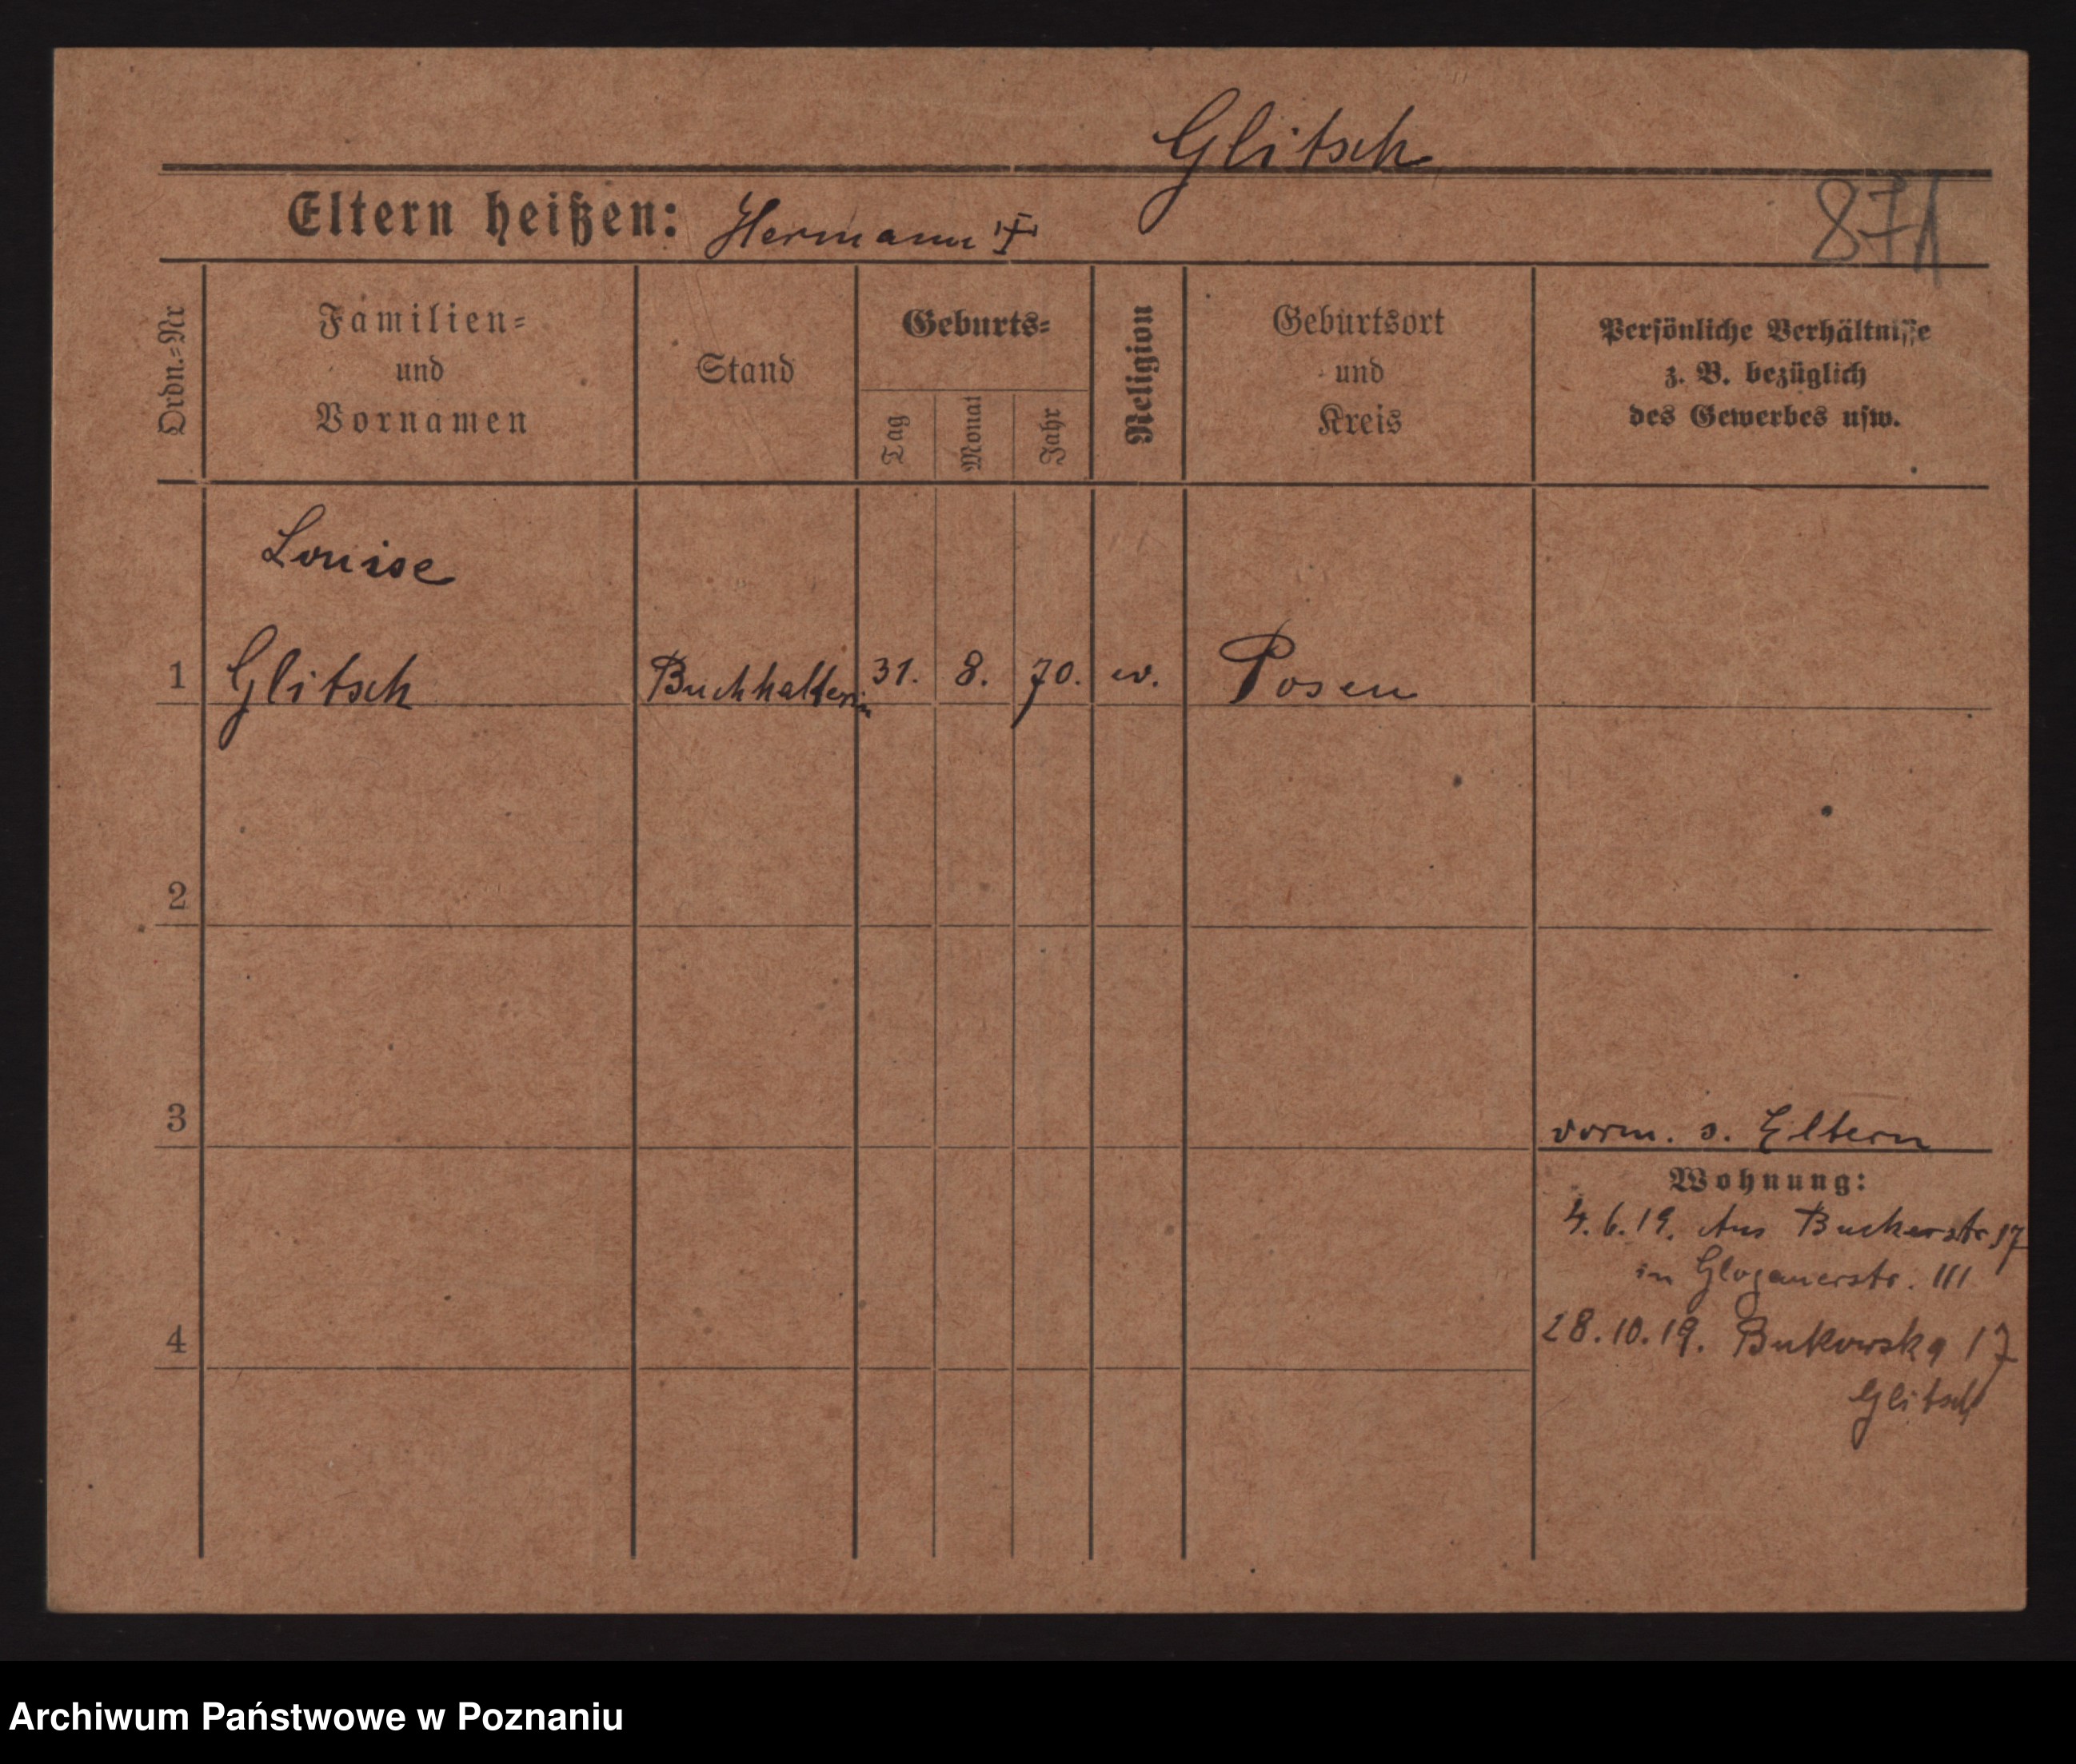 Glitsch
Eltern heißen: Hermann
871
Ordn.=Nr
Familien=
und
Vornamen
Stand
Geburts=
Tag
Monat
Jahr
Religion
Geburtsort
und
Kreis
Persönliche Verhältnisse
z. B. bezüglich
des Gewerbes usw.
Louise
1 Glitsch Buchhalterin 31. 8. 70. ev. Posen
2
3
vorm. s. Eltern
Wohnung:
4.6.19. Aus Bukerstr 17
in Glogauerstr. 111
4
28.10.19. Bukowska 17
Glitsch
Archiwum Państwowe w Poznaniu